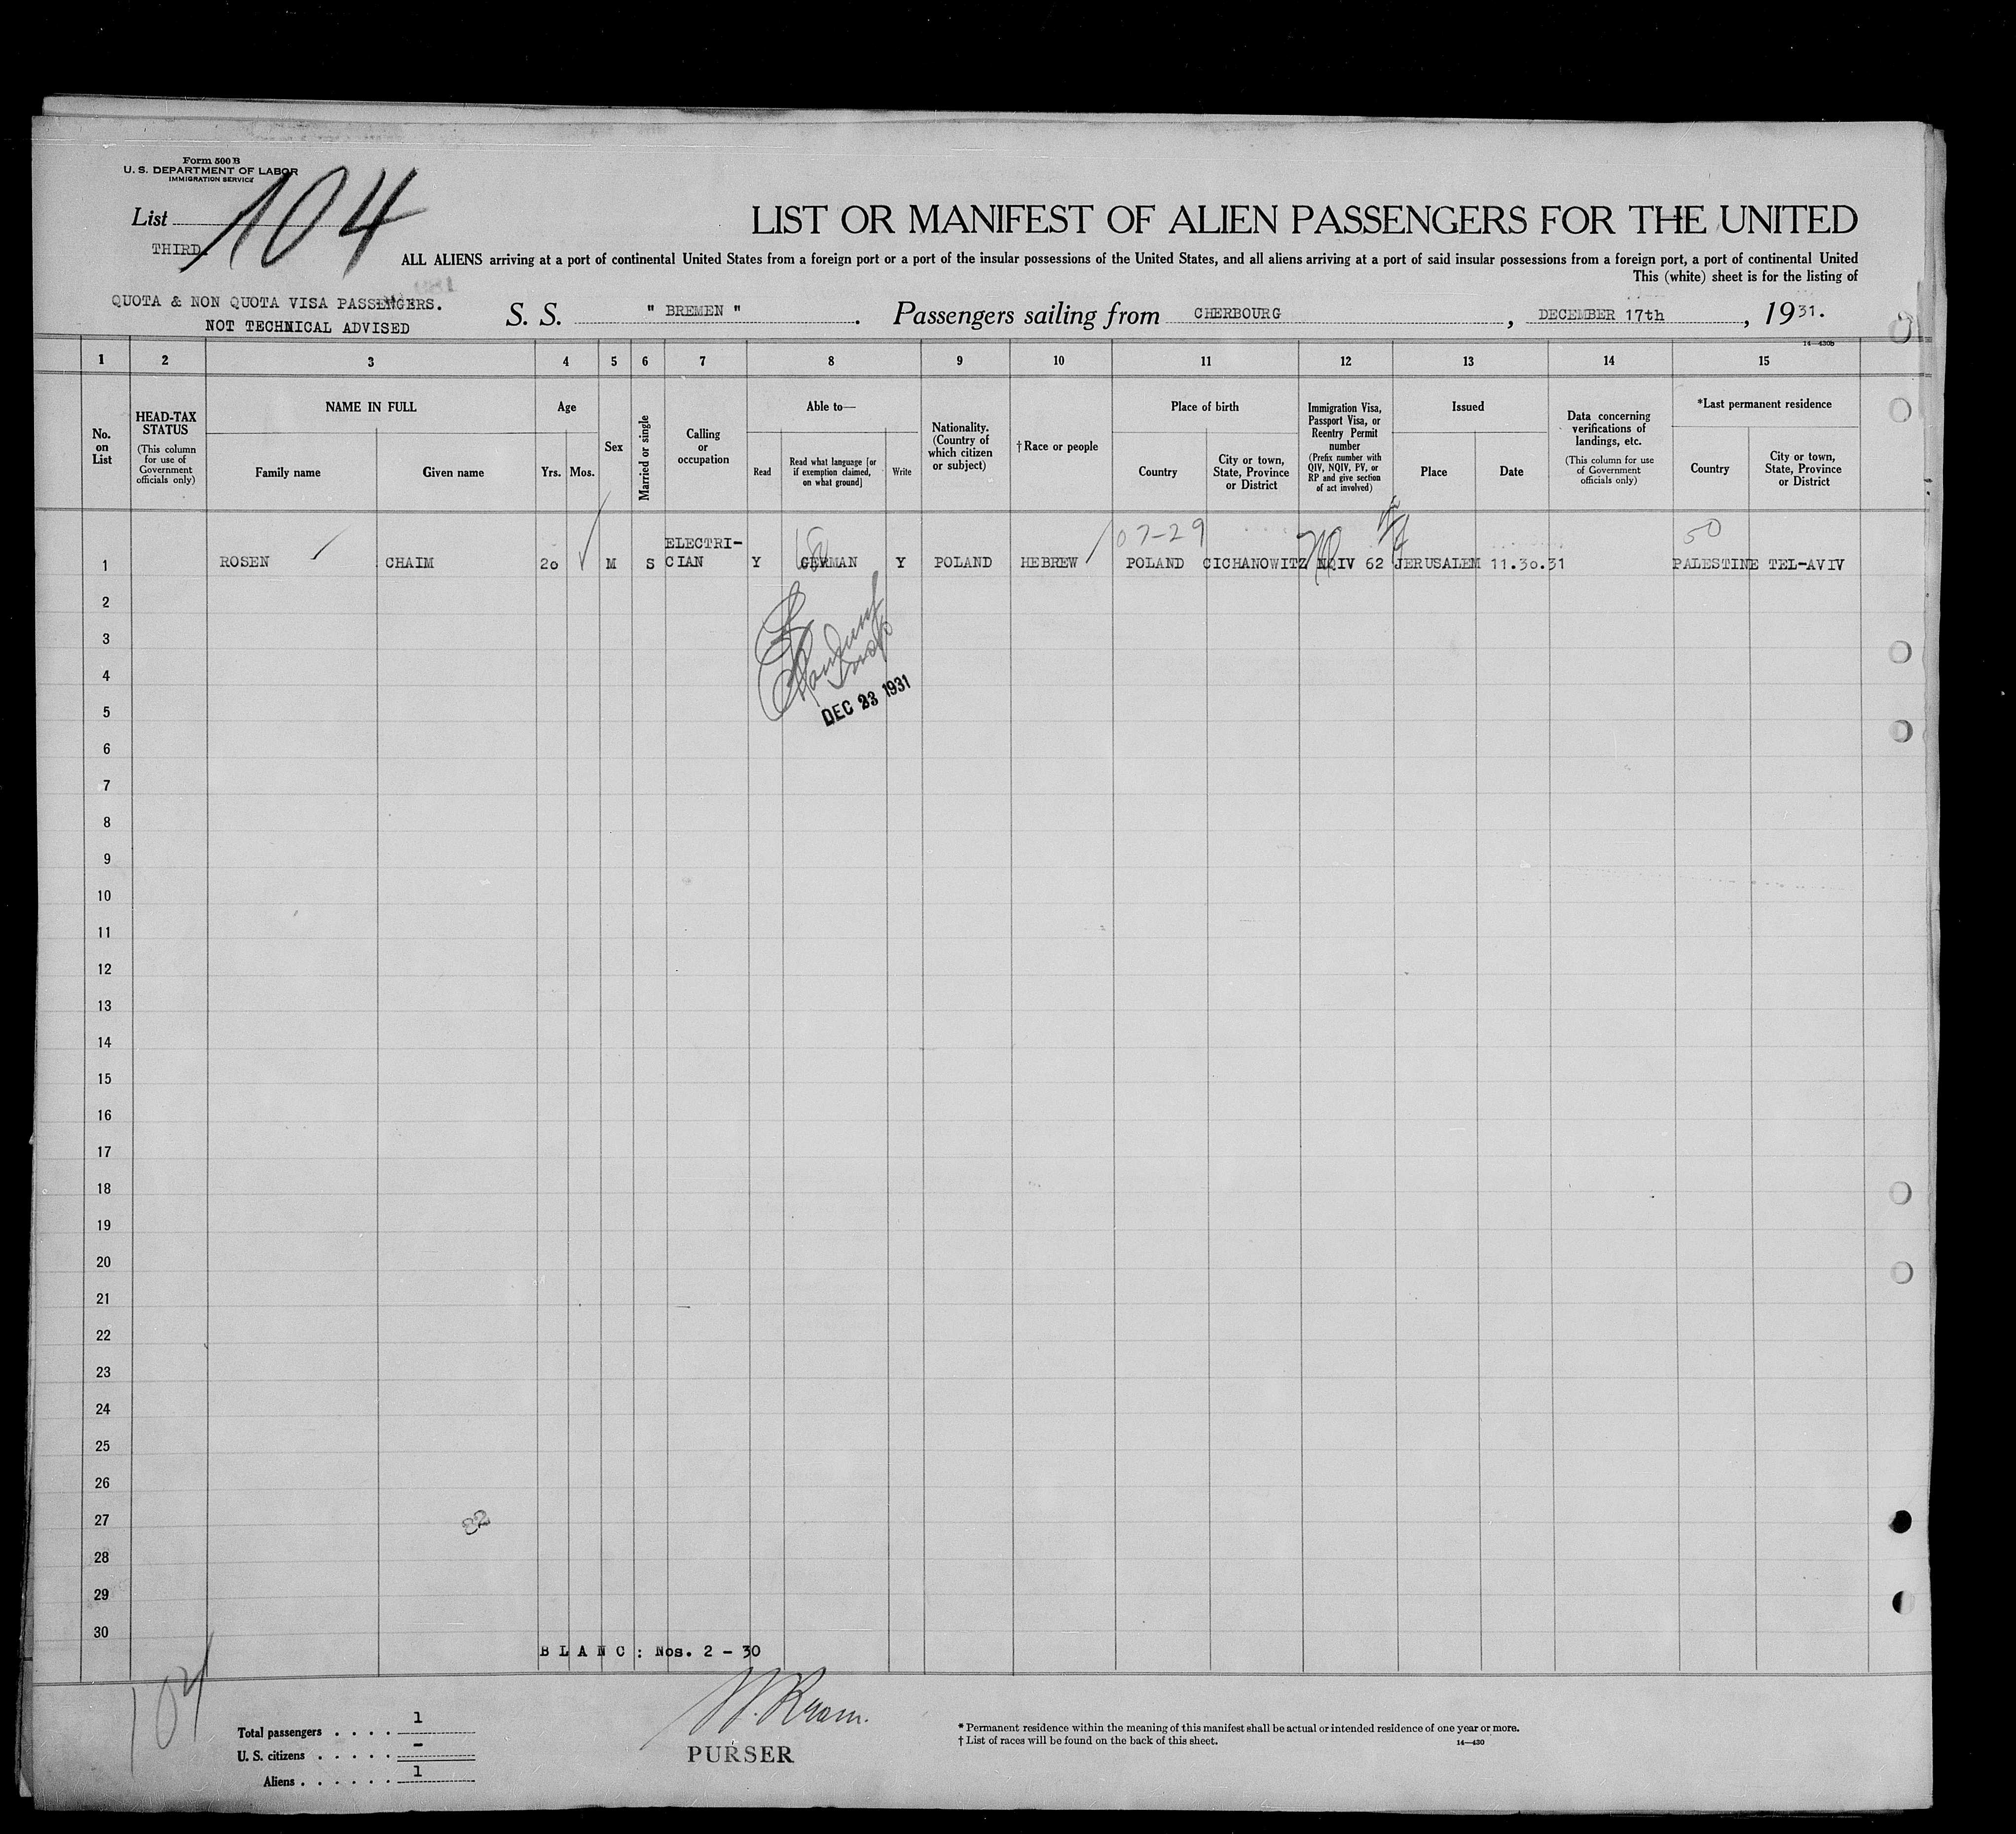 Form 500 B
U. S. DEPARTMENT OF LABOR
IMMIGRATION SERVICE
List 104
THIRD
LIST OR MANIFEST OF ALIEN PASSENGERS FOR THE UNITED
ALL ALIENS arriving at a port of continental United States from a foreign port or a port of the insular possessions of the United States, and all aliens arriving at a port of said insular possessions from a foreign port, a port of continental United
This (white) sheet is for the listing of
QUOTA & NON QUOTA VISA PASSENGERS.
NOT TECHNICAL ADVISED
S. S. " BREMEN " . Passengers sailing from CHERBOURG , DECEMBER 17th , 1931.
14—430B
1 2 3 4 5 6 7 8 9 10 11 12 13 14 15
No. on List
HEAD-TAX STATUS
(This column for use of Government officials only)
NAME IN FULL
Family name
Given name
Age
Yrs.
Mos.
Sex
Married or single
Calling or occupation
Able to—
Read
Read what language [or if exemption claimed, on what ground]
Write
Nationality. (Country of which citizen or subject)
† Race or people
Place of birth
Country
City or town, State, Province or District
Immigration Visa, Passport Visa, or Reentry Permit number
(Prefix number with QIV, NQIV, PV, or RP and give section of act involved)
Issued
Place
Date
Data concerning verifications of landings, etc.
(This column for use of Government officials only)
*Last permanent residence
Country
City or town, State, Province or District
07-29
50
1 ROSEN CHAIM 20 M S ELECTRI-CIAN Y GERMAN Y POLAND HEBREW POLAND CICHANOWITZ NQIV 62 JERUSALEM 11.30.31 PALESTINE TEL-AVIV
2
3
4
5
DEC 23 1931
6
7
8
9
10
11
12
13
14
15
16
17
18
19
20
21
22
23
24
25
26
27
28
29
30
B L A N C : Nos. 2 - 30
104
Total passengers . . . . 1
U. S. citizens . . . . . -
Aliens . . . . . . 1
PURSER
* Permanent residence within the meaning of this manifest shall be actual or intended residence of one year or more.
† List of races will be found on the back of this sheet.
14—430